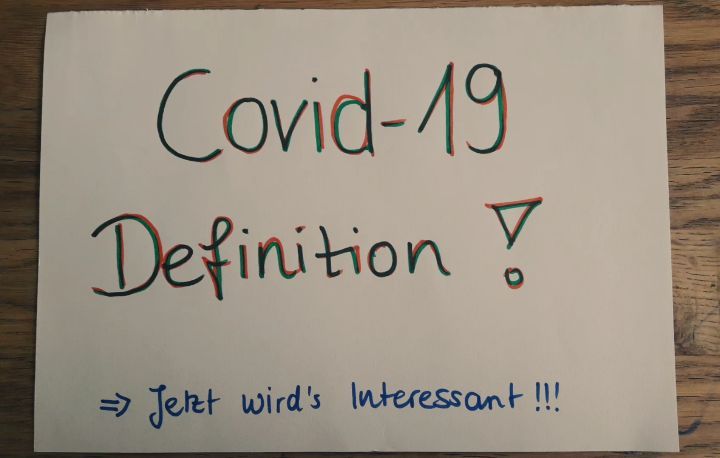 Covid-19
Definition !
⇒ Jetzt wird's Interessant!!!